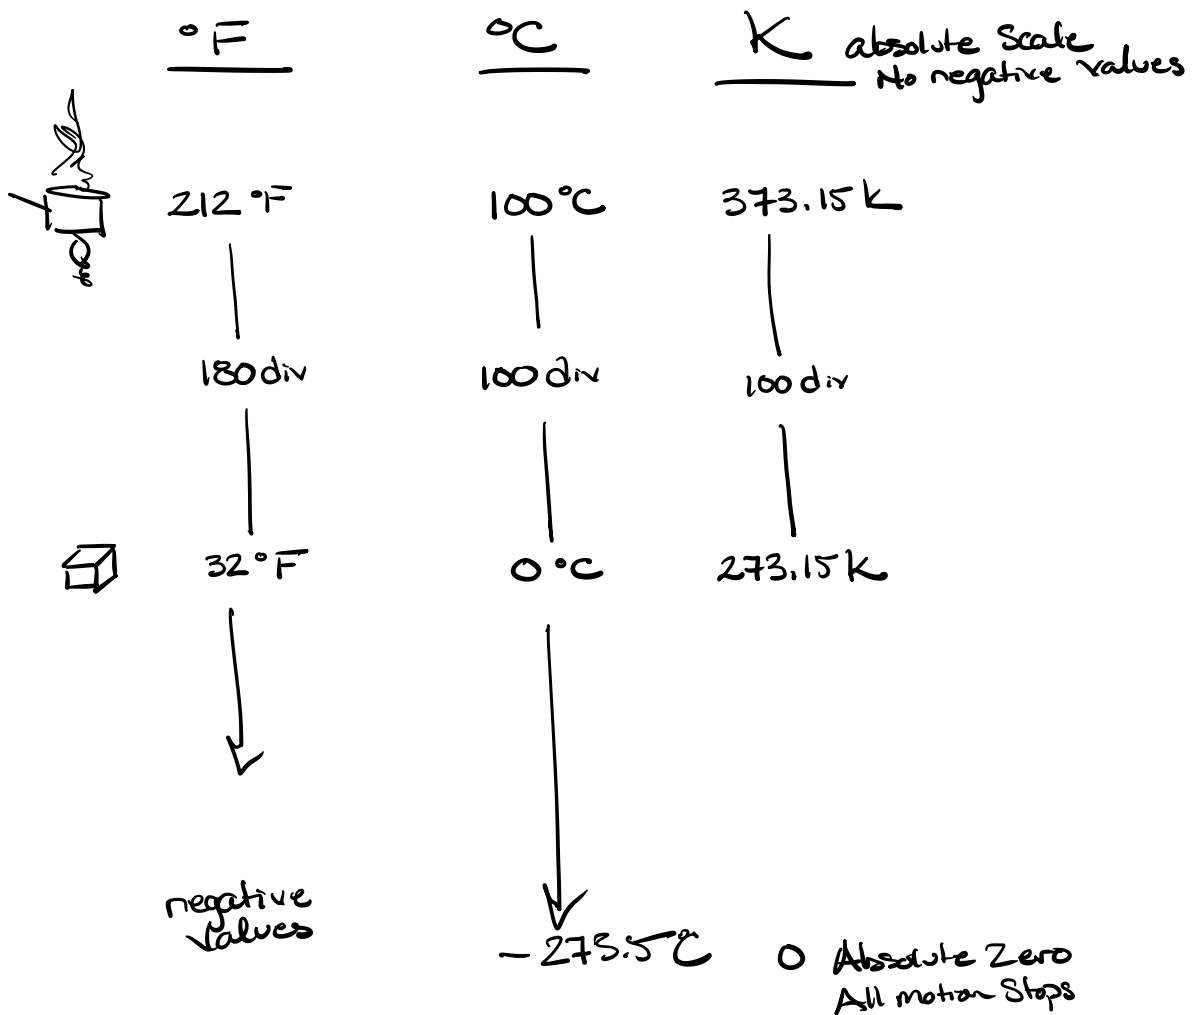 °F °C K absolute Scale
No negative values
212 °F 100°C 373.15 K
180 div 100 div 100 div
32 °F 0 °C 273.15 K
negative
values
-273.5°C 0 Absolute Zero
All motion Stops